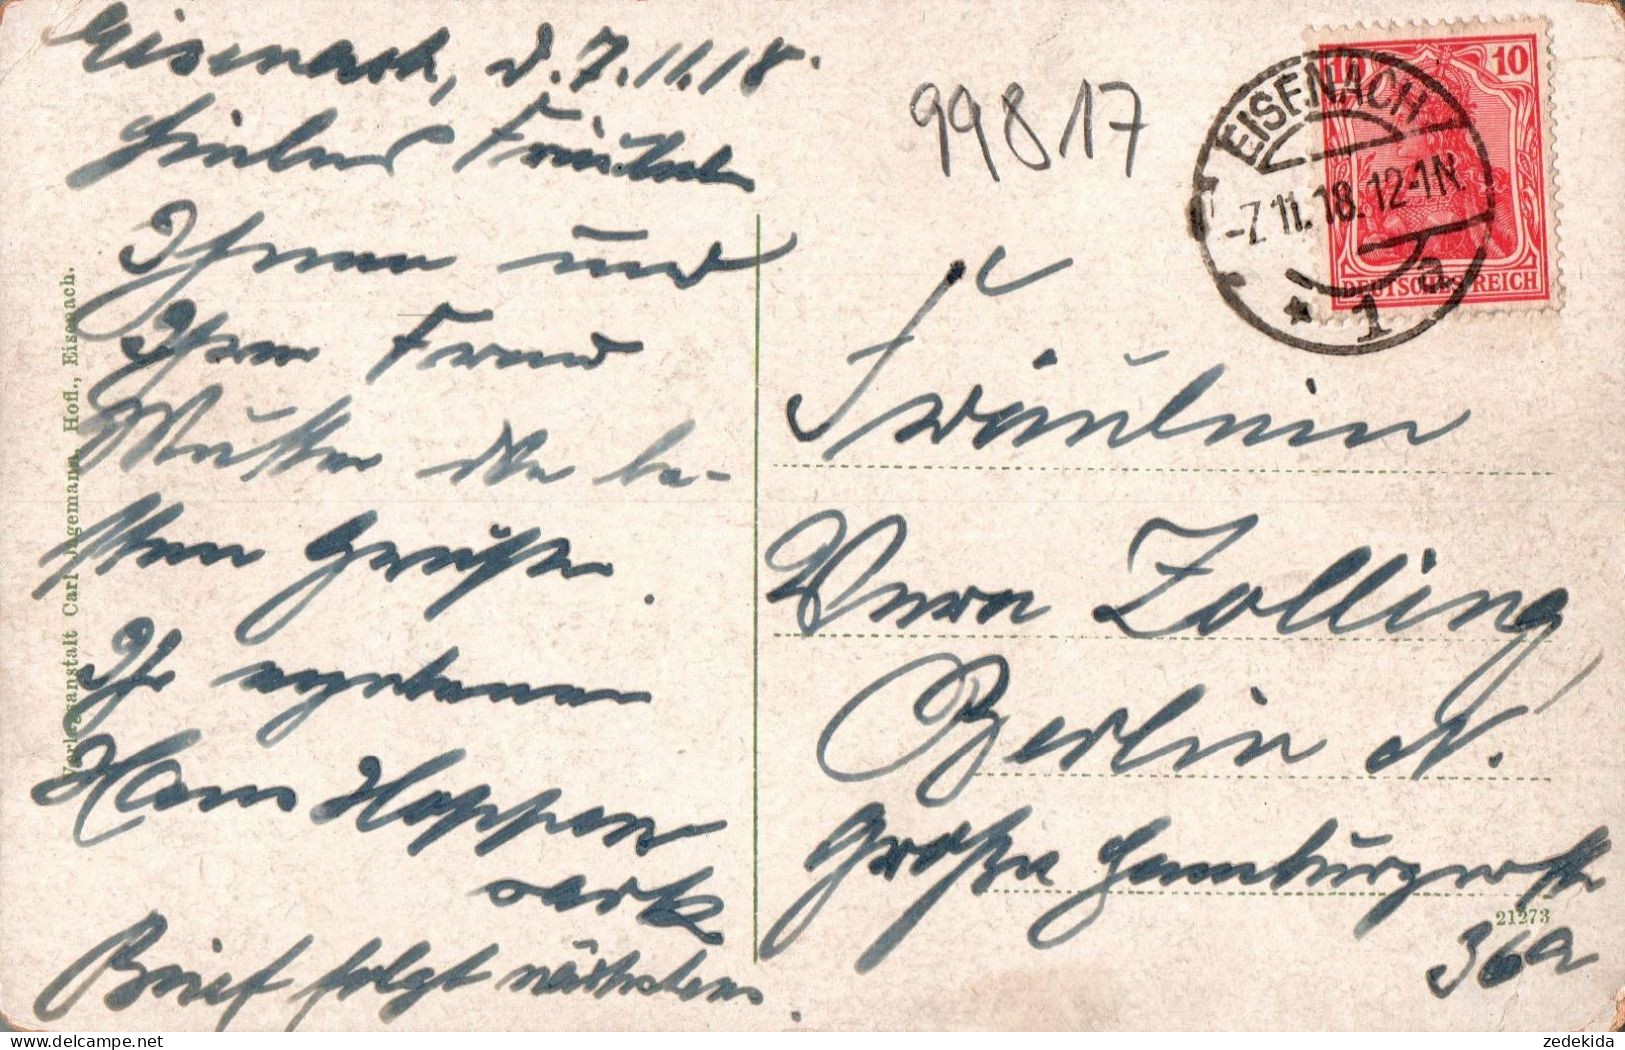 Eisenach, d. 7.11.18.
Liebes Fräulein
Ihnen und
Ihrer Frau
Mutter die be-
sten Grüße.
Ihr ergebener
Hans Hoppen
Brief folgt nächstens.
Verlagsanstalt Carl Jagemann, Hofl., Eisenach.
99817
10 10
DEUTSCHES REICH
EISENACH
-7.11.18.12-1N.
* 1 a
Fräulein
Vera Zolling
Berlin N.
Große Hamburgerstr
21273
36a
zedekida